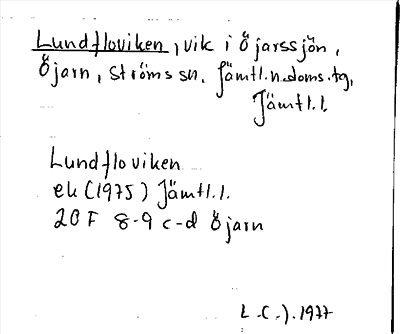 Lundfloviken, vik i Öjarssjön,
Öjarn, Ströms sn. Jämtl.n.doms.tg,
Jämtl.l.
Lundfloviken
ek (1975) Jämtl.l.
20 F 8-9 c-d Öjarn
1977